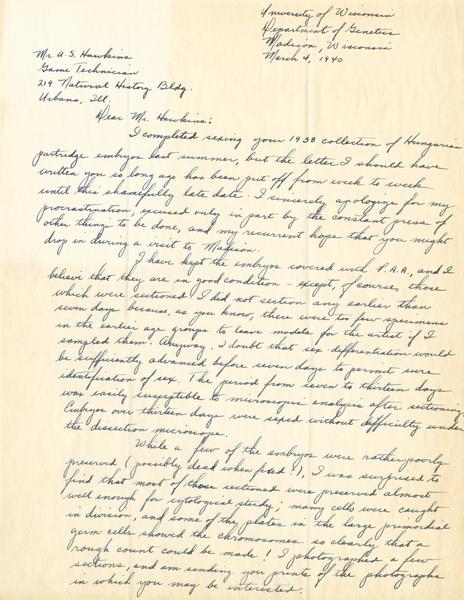 University of Wisconsin
Department of Genetics
Madison, Wisconsin
March 4, 1940
Mr. A. S. Hawkins
Game Technician
219 Natural History Bldg.
Urbana, Ill.
Dear Mr. Hawkins:
I completed sexing your 1938 collection of Hungarian
partridge embryos last summer, but the letter I should have
written you so long ago has been put off from week to week
until this shamefully late date. I sincerely apologize for my
procrastination, excused only in part by the constant press of
other things to be done, and my recurrent hope that you might
drop in during a visit to Madison.
I have kept the embryos covered with F.A.A., and I
believe that they are in good condition - except, of course, those
which were sectioned. I did not section any earlier than
seven days because, as you know, there were too few specimens
in the earlier age groups to leave models for the artist if I
sampled them. Anyway, I doubt that sex differentiation would
be sufficiently advanced before seven days to permit sure
identification of sex. The period from seven to thirteen days
was easily susceptible to microscopic analysis after sectioning.
Embryos over thirteen days were sexed without difficulty under
the dissection microscope.
While a few of the embryos were rather poorly
preserved (possibly dead when fixed?), I was surprised to
find that most of those sectioned were preserved almost
well enough for cytological study; many cells were caught
in division, and some of the plates in the large primordial
germ cells showed the chromosomes so clearly that a
rough count could be made! I photographed a few
sections, and am sending you prints of the photographs
in which you may be interested.